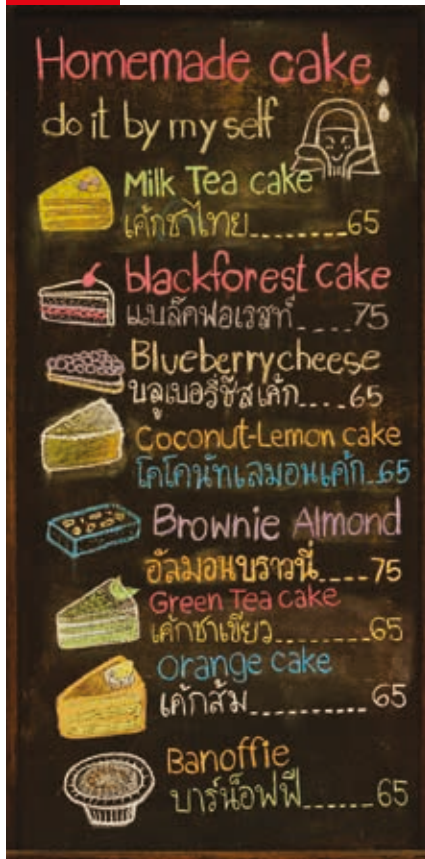 Homemade cake
do it by my self
Milk Tea cake
เค้กชาไทย........65
blackforest cake
แบล๊คฟอเรสท์....75
Blueberrycheese
บลูเบอรี่ชีสเค้ก....65
Coconut-Lemon cake
โคโคนัทเลมอนเค้ก..65
Brownie Almond
อัลมอนบราวนี่....75
Green Tea cake
เค้กชาเขียว........65
Orange cake
เค้กส้ม..........65
Banoffie
บาร์น็อฟฟี่......65